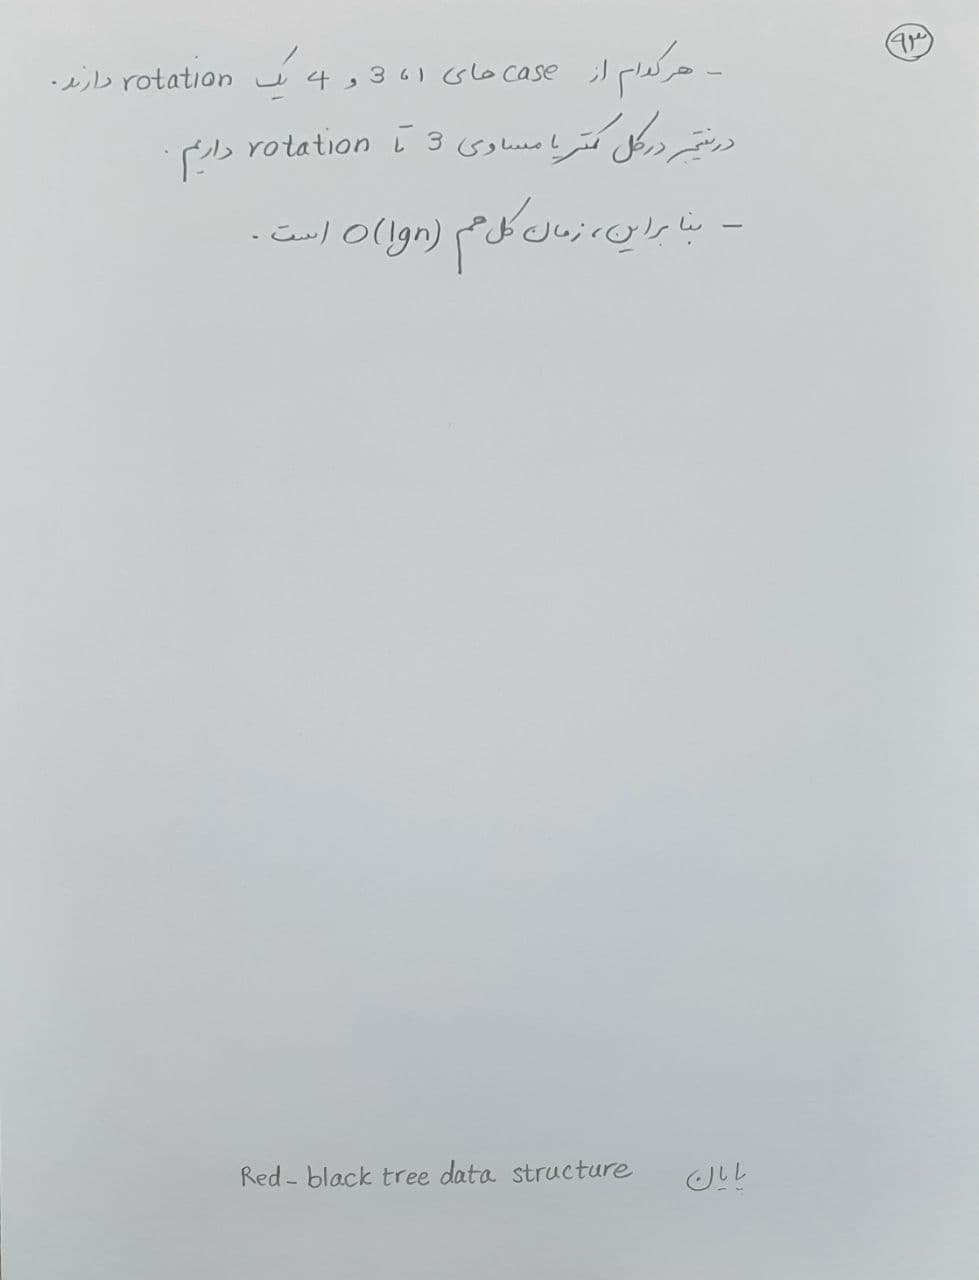 ۹۳
- هر کدام از case های 1، 3 و 4 یک rotation دارند.
در نتیجه در کل کمتر یا مساوی 3 تا rotation داریم.
- بنابراین، زمان کل هم O(lgn) است.
پایان Red-black tree data structure